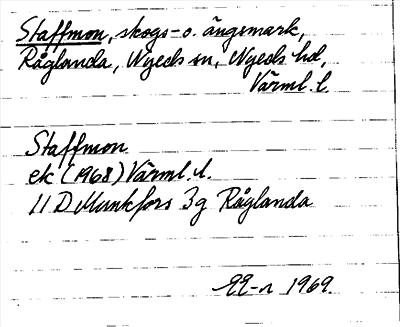 Staffmon, skogs- o. ängsmark,
Råglanda, Nyeds sn, Nyeds hd,
Värml. l.
Staffmon
ek (1968) Värml. l.
11 D Munkfors 3g Råglanda
1969.